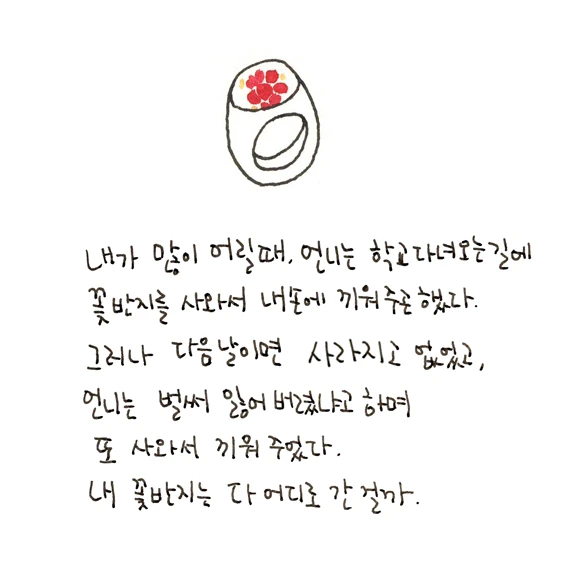 내가 많이 어릴때, 언니는 학교다녀오는길에
꽃반지를 사와서 내손에 끼워주곤했다.
그러나 다음날이면 사라지고 없었고,
언니는 벌써 잃어버렸냐고 하며
또 사와서 끼워주었다.
내 꽃반지는 다 어디로 간걸까.